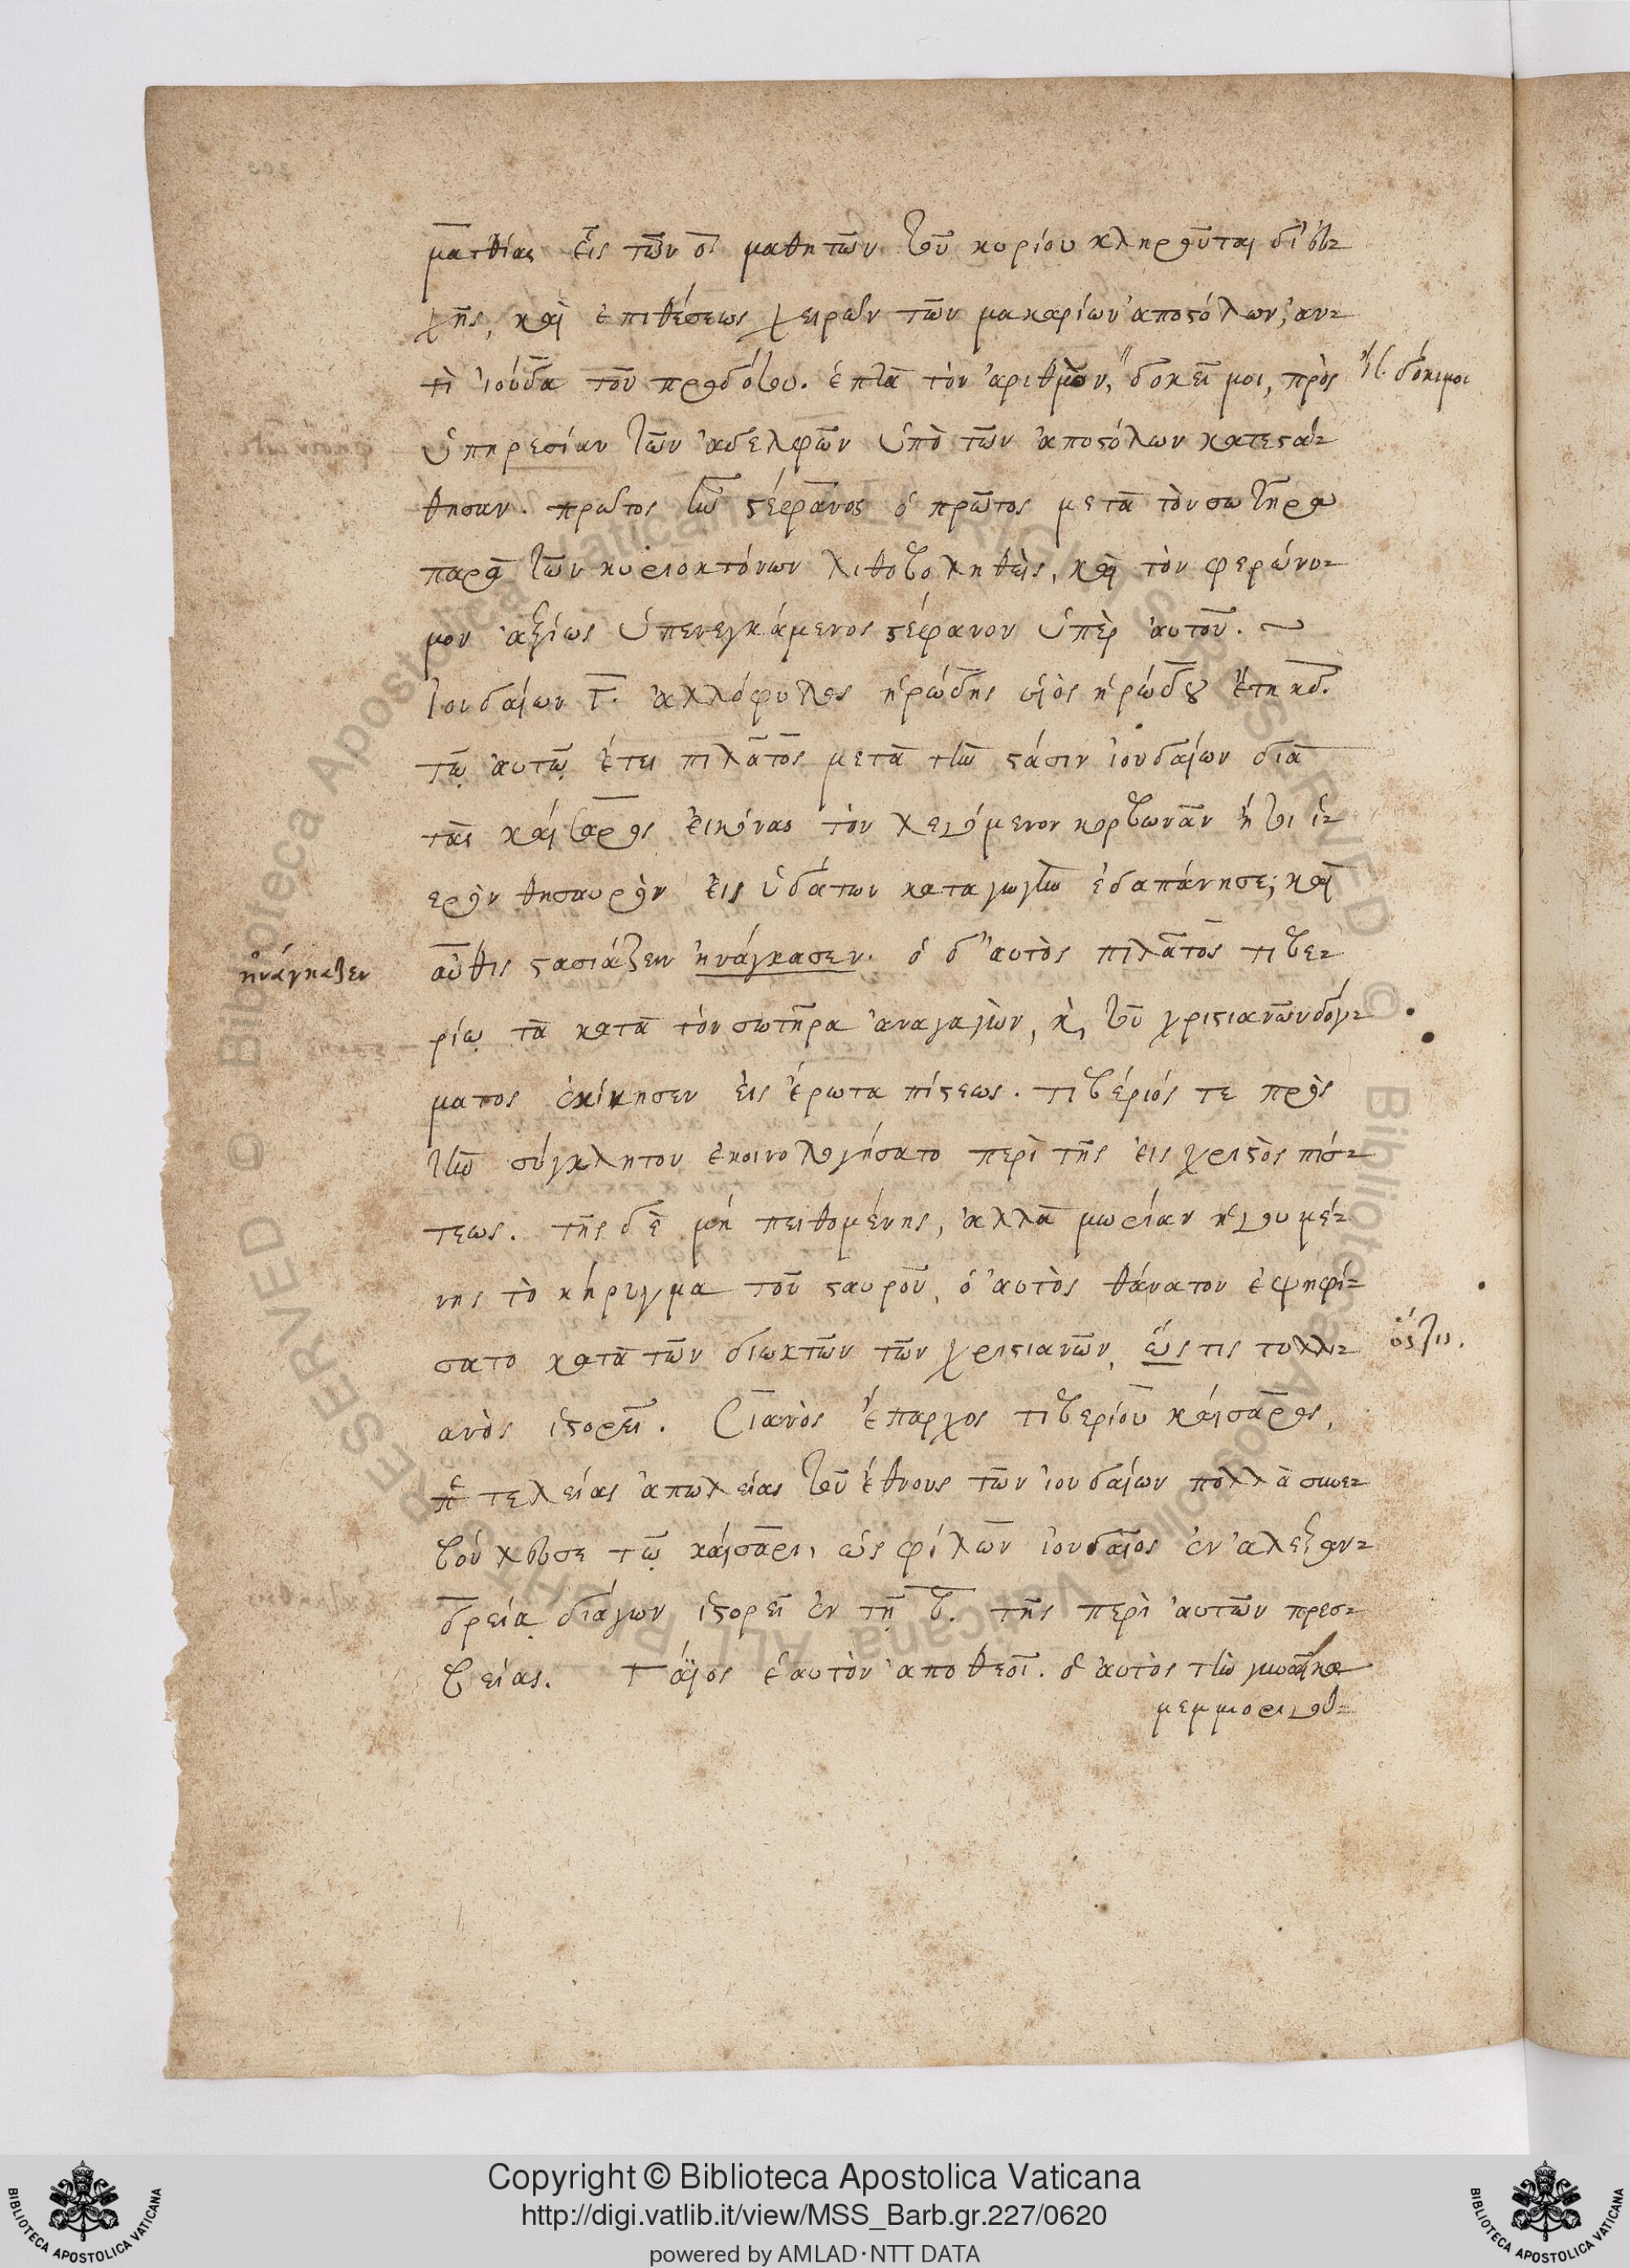 ματθίας εἷς τῶν ο̅ μαθητῶν τοῦ κυρίου κληροῦται δι' εὐ-
χῆς, καὶ ἐπιθέσεως χειρῶν τῶν μακαρίων ἀποστόλων, ἀν-
τὶ ἰούδα τοῦ προδότου. ἑπτὰ τὸν ἀριθμὸν, δοκεῖ μοι, πρὸς
δόκιμοι
ὑπηρεσίαν τῶν ἀδελφῶν ὑπὸ τῶν ἀποστόλων κατεστά-
θησαν. πρῶτος ἦν στέφανος ὁ πρῶτος μετὰ τὸν σωτῆρα
παρὰ τῶν κυριοκτόνων λιθοβοληθεὶς, καὶ τὸν φερώνυ-
μον ἀξίως ὑπενεγκάμενος στέφανον ὑπὲρ αὐτοῦ. ~
Ἰουδαίων γ̅. ἀλλόφυλος ἡρώδης υἱὸς ἡρώδου ἔτη κδ.
τῷ αὐτῷ ἔτει πιλᾶτος μετὰ τὴν στάσιν ἰουδαίων διὰ
τὰς καίσαρος εἰκόνας τὸν λεγόμενον κορβωνᾶν ἤτοι ἱ-
ερὸν θησαυρὸν εἰς ὑδάτων καταγωγὴν ἐδαπάνησε, καὶ
αὖθις στασιάζειν ἠνάγκασεν. ὁ δ' αὐτὸς πιλᾶτος τιβε-
ἠνάγκαζεν
ρίῳ τὰ κατὰ τὸν σωτῆρα ἀναγαγὼν, κ, τοῦ χριστιανῶν δόγ-
ματος ἐκίνησεν εἰς ἔρωτα πίστεως. τιβέριός τε πρὸς
τὴν σύγκλητον ἐκοινολογήσατο περὶ τῆς εἰς χριστὸς πίσ-
τεως. τῆς δὲ μὴ πειθομένης, ἀλλὰ μωρίαν ἡγουμέ-
νης τὸ κήρυγμα τοῦ σταυροῦ, ὁ αὐτὸς θάνατον ἐψηφί-
σατο κατὰ τῶν διωκτῶν τῶν χριστιανῶν, ὥς τις τυλλι-
ὅστις.
ανὸς ἱστορεῖ. Σιανὸς ἔπαρχος τιβερίου καίσαρος,
τελείας ἀπωλείας τοῦ ἔθνους τῶν ἰουδαίων πολλὰ συνε-
βούλευσε τῷ καίσαρι, ὡς φίλων ἰουδαῖος ἐν ἀλεξαν-
δρείᾳ διάγων ἱστορεῖ ἐν τῇ β̅. τῆς περὶ αὐτῶν πρεσ-
βείας. Γάϊος ἑαυτὸν ἀποθεοῖ. ὁ αὐτὸς τὴν γυναῖκα
μεμμιοριγοῦ-
Copyright © Biblioteca Apostolica Vaticana
http://digi.vatlib.it/view/MSS_Barb.gr.227/0620
powered by AMLAD·NTT DATA
BIBLIOTECA APOSTOLICA VATICANA
BIBLIOTECA APOSTOLICA VATICANA